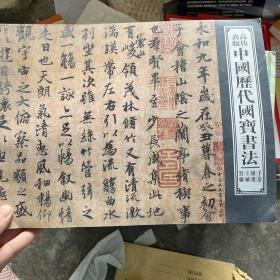 高仿
真版
中國歷代國寶書法
手卷
冊頁
立軸
對聯
永和九年歲在癸丑暮春之初
于會稽山陰之蘭亭脩稧事
也群賢畢至少長咸集此地
有崇山峻領茂林脩竹又有清流激
湍暎帶左右引以為流觴曲水
列坐其次雖無絲竹管弦之
盛一觴一詠亦足以暢敘幽情
是日也天朗氣清惠風和暢仰
觀宇宙之大俯察品類之盛